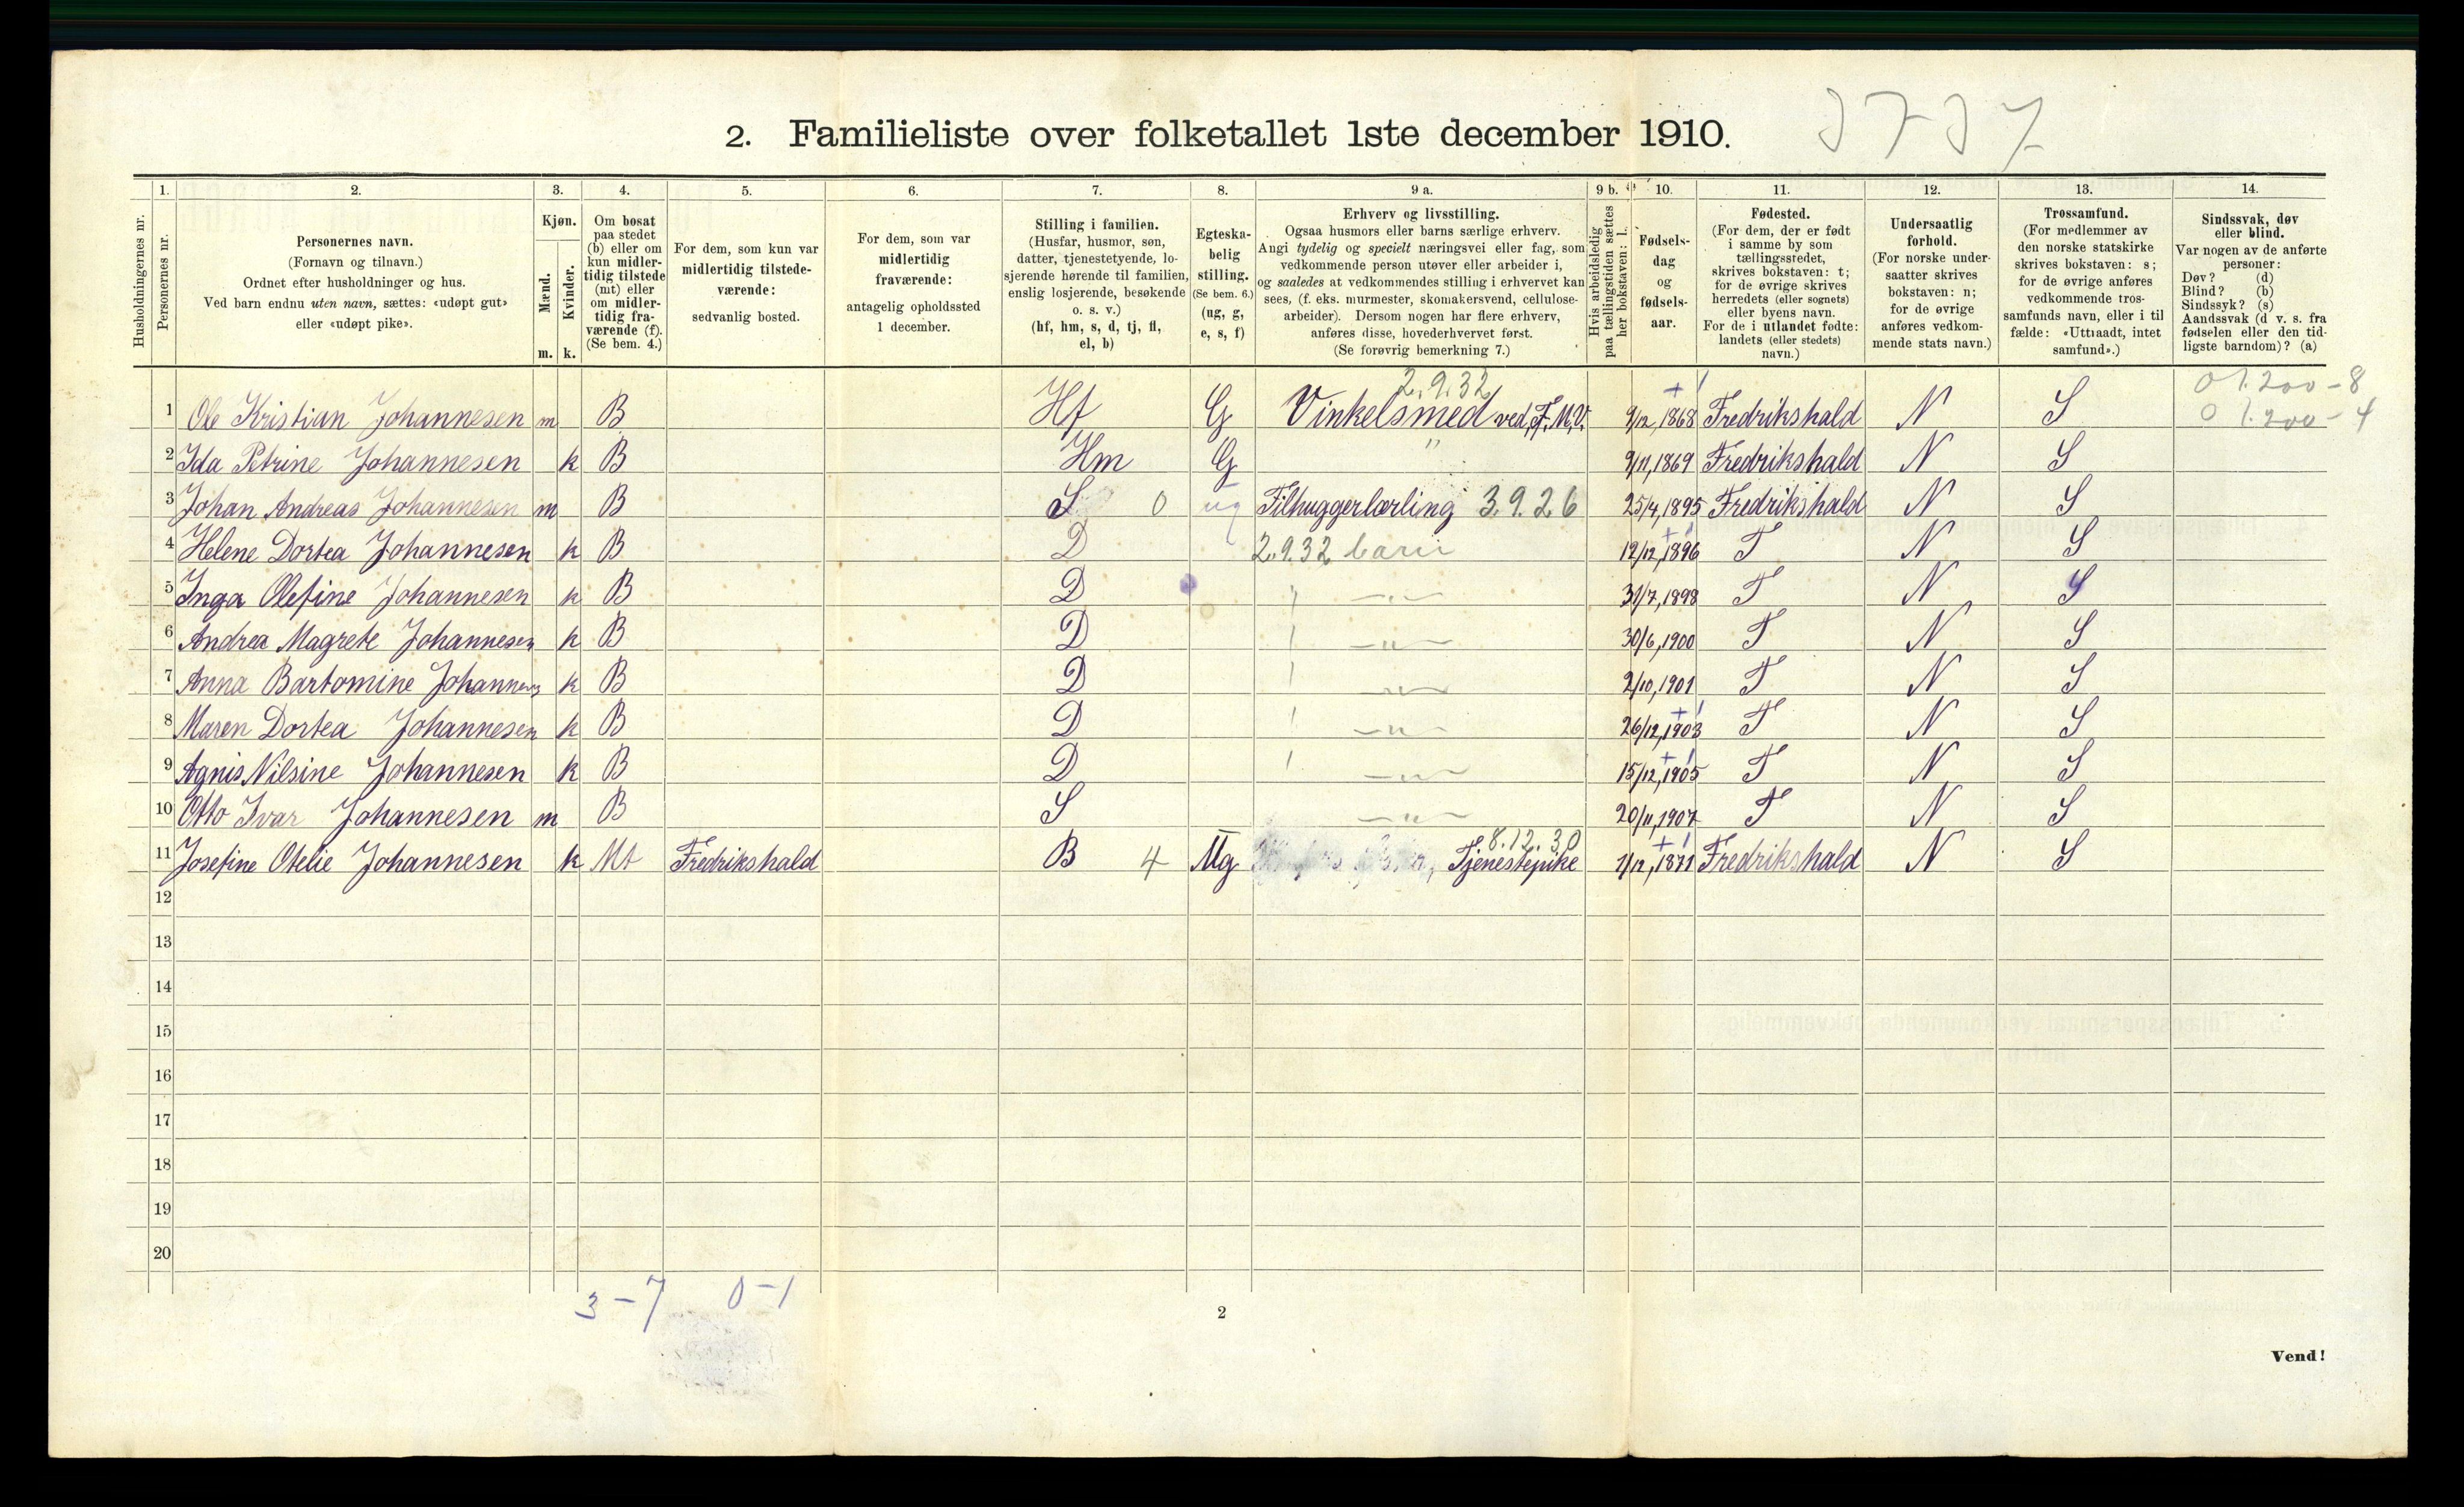 2. Familieliste over folketallet 1ste december 1910.
1. 2. 3. 4. 5. 6. 7. 8. 9 a. 9 b. 10. 11. 12. 13. 14.
Husholdningernes nr.
Personernes nr.
Personernes navn.
(Fornavn og tilnavn.)
Ordnet efter husholdninger og hus.
Ved barn endnu uten navn, sættes: «udøpt gut»
eller «udøpt pike».
Kjøn.
Mænd.
Kvinder.
m. k.
Om bosat
paa stedet
(b) eller om
kun midler-
tidig tilstede
(mt) eller
om midler-
tidig fra-
værende (f).
(Se bem. 4.)
For dem, som kun var
midlertidig tilstede-
værende:
sedvanlig bosted.
For dem, som var
midlertidig
fraværende:
antagelig opholdssted
1 december.
Stilling i familien.
(Husfar, husmor, søn,
datter, tjenestetyende, lo-
sjerende hørende til familien,
enslig losjerende, besøkende
o. s. v.)
(hf, hm, s, d, tj, fl,
el, b)
Egteska-
belig
stilling.
(Se bem. 6.)
(ug, g,
e, s, f)
Erhverv og livsstilling.
Ogsaa husmors eller barns særlige erhverv.
Angi tydelig og specielt næringsvei eller fag, som
vedkommende person utøver eller arbeider i,
og saaledes at vedkommendes stilling i erhvervet kan
sees, (f. eks. murmester, skomakersvend, cellulose-
arbeider). Dersom nogen har flere erhverv,
anføres disse, hovederhvervet først.
(Se forøvrig bemerkning 7.)
Hvis arbeidsledig
paa tællingstiden sættes
her bokstaven: l.
Fødsels-
dag
og
fødsels-
aar.
Fødested.
(For dem, der er født
i samme by som
tællingsstedet,
skrives bokstaven: t;
for de øvrige skrives
herredets (eller sognets)
eller byens navn.
For de i utlandet fødte:
landets (eller stedets)
navn.)
Undersaatlig
forhold.
(For norske under-
saatter skrives
bokstaven: n;
for de øvrige
anføres vedkom-
mende stats navn.)
Trossamfund.
(For medlemmer av
den norske statskirke
skrives bokstaven: s;
for de øvrige anføres
vedkommende tros-
samfunds navn, eller i til
fælde: «Uttraadt, intet
samfund».)
Sindssvak, døv
eller blind.
Var nogen av de anførte
personer:
Døv? (d)
Blind? (b)
Sindssyk? (s)
Aandssvak (d v. s. fra
fødselen eller den tid-
ligste barndom)? (a)
2.9.32
1 Ole Kristian Johannesen m B Hf G Vinkelsmed ved F. M. V. 9/12, 1868 Fredrikshald N S
2 Ida Petrine Johannesen k B Hm G " 9/11, 1869 Fredrikshald N S
3 Johan Andreas Johannesen m B S 0 ug Filhuggerlærling 3.9.26 25/4, 1895 Fredrikshald N S
4 Helene Dortea Johannesen k B D 2.9.32 12/12, 1896 T N S
5 Inga Olefine Johannesen k B D —"— 31/7, 1898 T N S
6 Andrea Magrete Johannesen k B D —"— 30/6, 1900 T N S
7 Anna Bartomine Johannes k B D —"— 2/10, 1901 T N S
8 Maren Dortea Johannesen k B D —"— 26/12, 1903 T N S
9 Agnis Nilsine Johannesen k B D —"— 15/12, 1905 T N S
10 Otto Ivar Johannesen m B S —"— 20/11, 1907 T N S
8.12.30
11 Josefine Otelie Johannesen k Mt Fredrikshald B 4 Ug Tjenestepike 1/12, 1871 Fredrikshald N S
12
13
14
15
16
17
18
19
20
3 – 7 0 – 1
2
Vend!